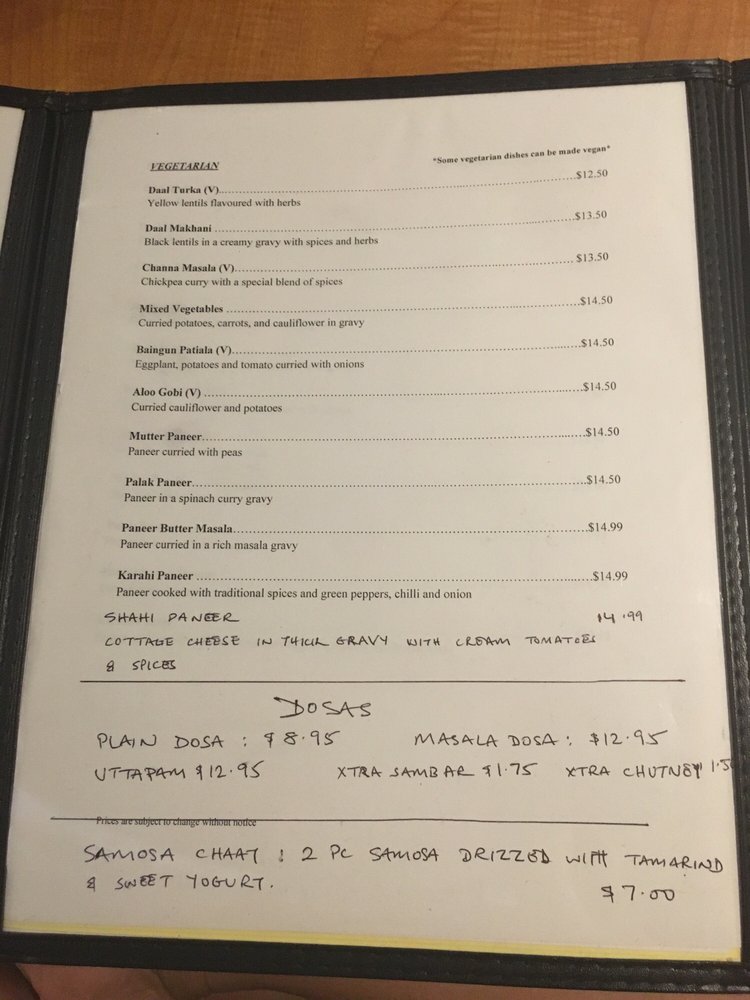 VEGETARIAN *Some vegetarian dishes can be made vegan*
Daal Turka (V)..........$12.50
Yellow lentils flavoured with herbs
Daal Makhani ..........$13.50
Black lentils in a creamy gravy with spices and herbs
Channa Masala (V)..........$13.50
Chickpea curry with a special blend of spices
Mixed Vegetables ..........$14.50
Curried potatoes, carrots, and cauliflower in gravy
Baingun Patiala (V)..........$14.50
Eggplant, potatoes and tomato curried with onions
Aloo Gobi (V) ..........$14.50
Curried cauliflower and potatoes
Mutter Paneer..........$14.50
Paneer curried with peas
Palak Paneer..........$14.50
Paneer in a spinach curry gravy
Paneer Butter Masala..........$14.99
Paneer curried in a rich masala gravy
Karahi Paneer ..........$14.99
Paneer cooked with traditional spices and green peppers, chilli and onion
SHAHI PANEER 14.99
COTTAGE CHEESE IN THICK GRAVY WITH CREAM TOMATOES
& SPICES
DOSAS
PLAIN DOSA : $8.95 MASALA DOSA : $12.95
UTTAPAM $12.95 XTRA SAMBAR $1.75 XTRA CHUTNEY 1.5
Prices are subject to change without notice
SAMOSA CHAAT : 2 PC SAMOSA DRIZZED WITH TAMARIND
& SWEET YOGURT.
$7.00